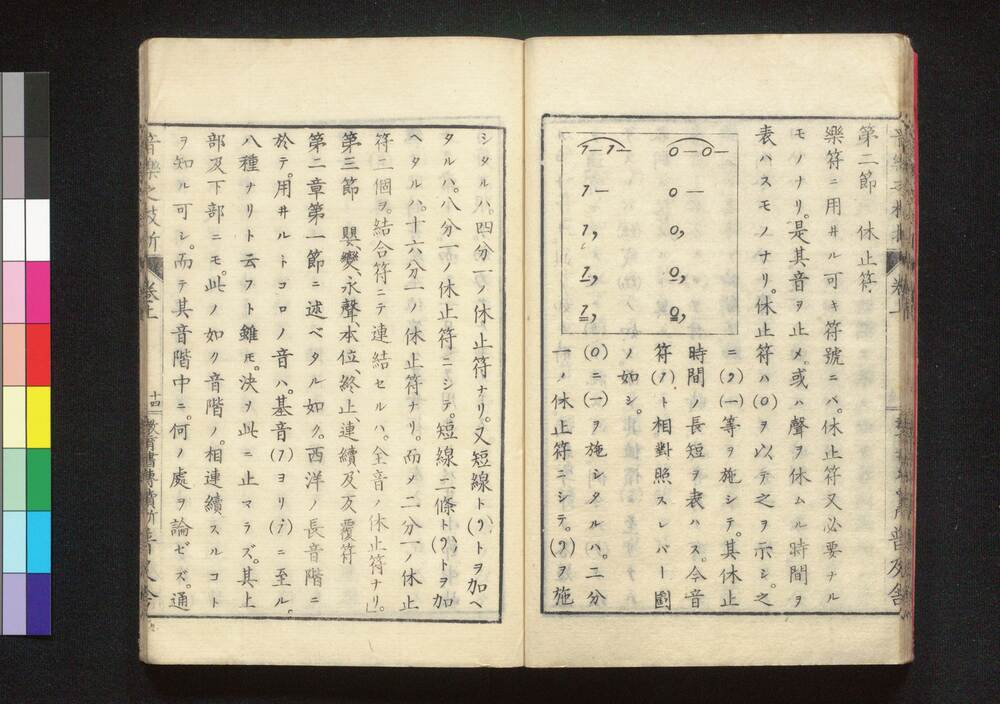 第二節 休止符
樂符ニ用井ル可キ符號ニハ。休止符又必要ナル
モノナリ。是其音ヲ止メ。或ハ聲ヲ休ムル時間ヲ
表ハスモノナリ。休止符ハ(0)ヲ以テ之ヲ示シ。之
ニ(,)(一)等ヲ施シテ。其休止
時間ノ長短ヲ表ハス。今音
符(1)ト相對照スレバ一圖
ノ如シ。
(0)ニ(一)ヲ施シタルハ。二分
一ノ休止符ニシテ。(,)ヲ施
0–0– 1–1–
0– 1–
0, 1,
0, 1,
0, 1,
シタルハ。四分一ノ休止符ナリ。又短線ト(,)トヲ加ヘ
タルハ。八分一ノ休止符ニシテ。短線二條ト(,)トヲ加
ヘタルハ。十六分一ノ休止符ナリ。而メ二分一ノ休止
符二個ヲ。結合符ニテ連結セルハ。全音ノ休止符ナリ。」
第三節 嬰、變、永聲、本位、終止、連續及反覆符
第二章第一節ニ述ベタル如ク。西洋ノ長音階ニ
於テ。用井ルトコロノ音ハ。基音(1)ヨリ(i)ニ至ル。
八種ナリト云フト雖モ。決ヲ此ニ止マラズ。其上
部及下部ニモ。此ノ如ク音階ノ。相連續スルコト
ヲ知ル可シ。而テ其音階中ニ。何ノ處ヲ論ゼズ。通
音樂之枝折
卷上
十四
教育書房
普及舍